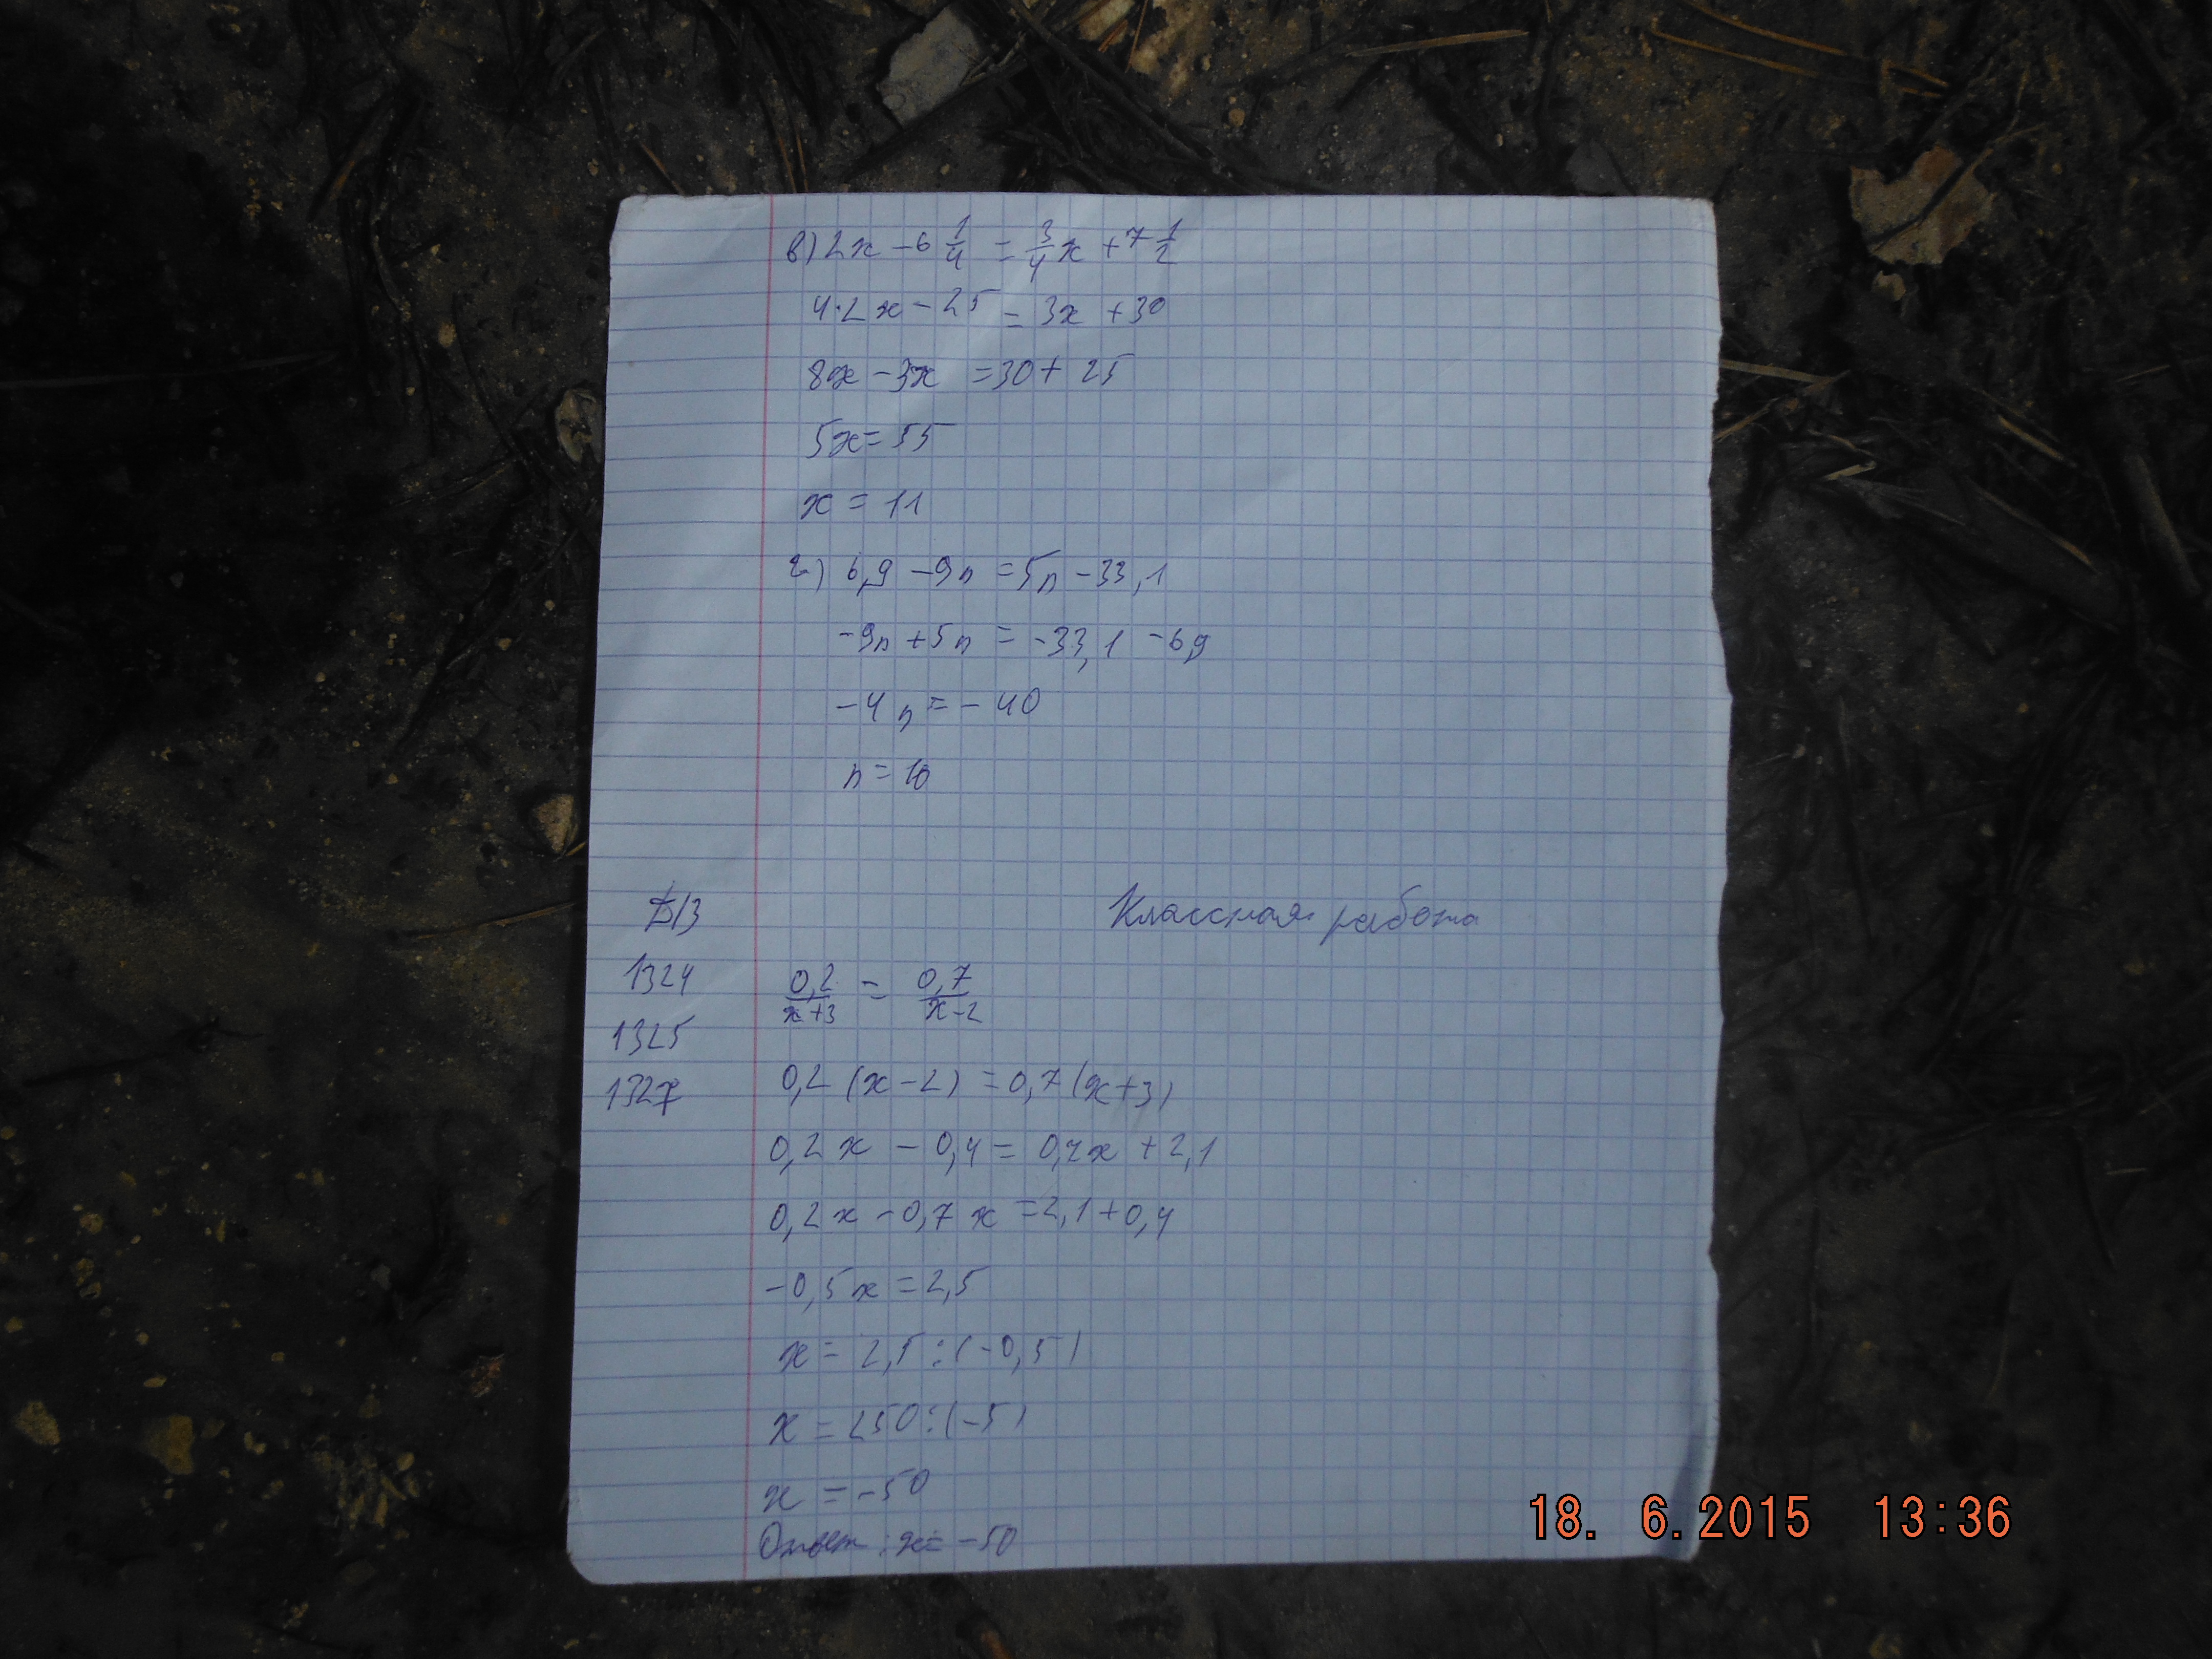 в) 2x - 6 1/4 = 3/4 x + 7 1/2
4·2x - 25 = 3x + 30
8x - 3x = 30 + 25
5x = 55
x = 11
г) 6,9 - 9n = 5n - 33,1
-9n + 5n = -33,1 - 6,9
-4n = -40
n = 10
Д/З
Классная работа
1324
0,2/(x+3) = 0,7/(x-2)
1325
0,2 (x-2) = 0,7 (x+3)
1327
0,2x - 0,4 = 0,7x + 2,1
0,2x - 0,7x = 2,1 + 0,4
-0,5x = 2,5
x = 2,5 : (-0,5)
x = 250 : (-5)
x = -50
Ответ: x = -50
18. 6.2015 13:36